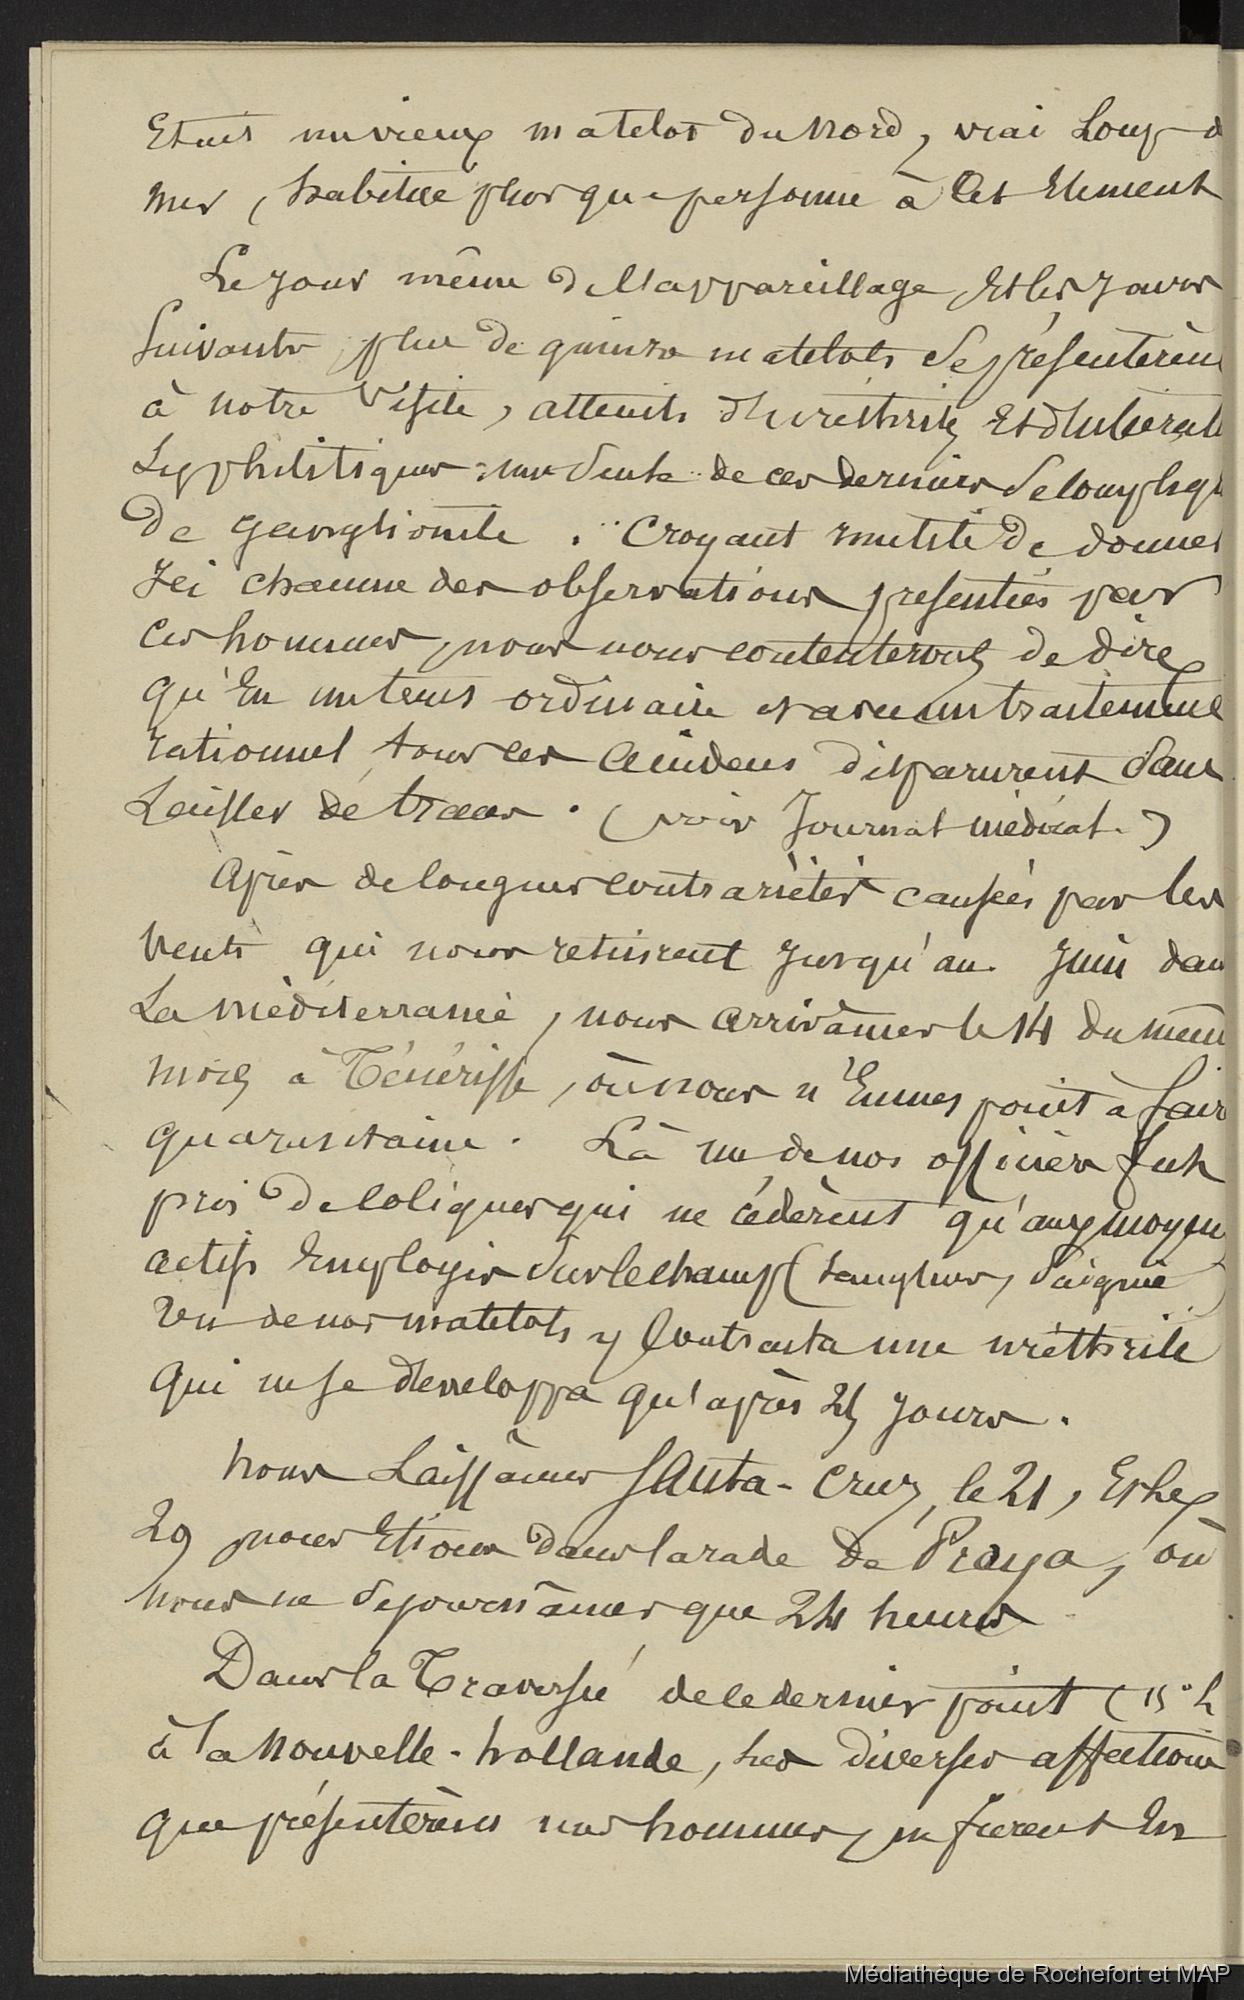 Etait un vieux matelot du Nord, vrai Loup d
mer, habitué plus que personne à Cet Element
Le jour même de l'appareillage, Et les jours
Suivants, plus de quinze matelots Se présentèren
à notre Visite, atteints d'Uréthrites Et d'Ulcerati
Syphilitiques : une Seule de ces dernières Se Compliqu
de Ganglionite. Croyant inutile de donner
Ici chacune des observations présentées par
Ces hommes, nous nous contenterons de dire,
qu'En un tems ordinaire et avec un traitement
rationnel, tous les accidens disparurent Sans
Laisser de traces. (voir Journal médical.)
Après de longues contrariétés causées par les
Vents qui nous retinrent Jusqu'au Juin dan
La méditerranée, nous arrivâmes le 14 du mêm
mois à Ténériffe, où nous n'Eumes point à fair
quarantaine. Là un de nos officiers fut
pris de Coliques qui ne cédèrent qu'aux moyen
actifs Employés Sur le champ (Sangsues, Saignée)
Un de nos matelots y Contracta une uréthrite
qui ne se développa qu'après 25 Jours.
Nous Laissâmes Santa-Cruz, le 21, Et le
29 nous Etions dans la rade de Praya, où
nous ne Séjournâmes que 24 heures
Dans la Traversée de ce dernier point (15° L
à la Nouvelle-hollande, Les diverses affections
que présentèrent nos hommes, ne furent En